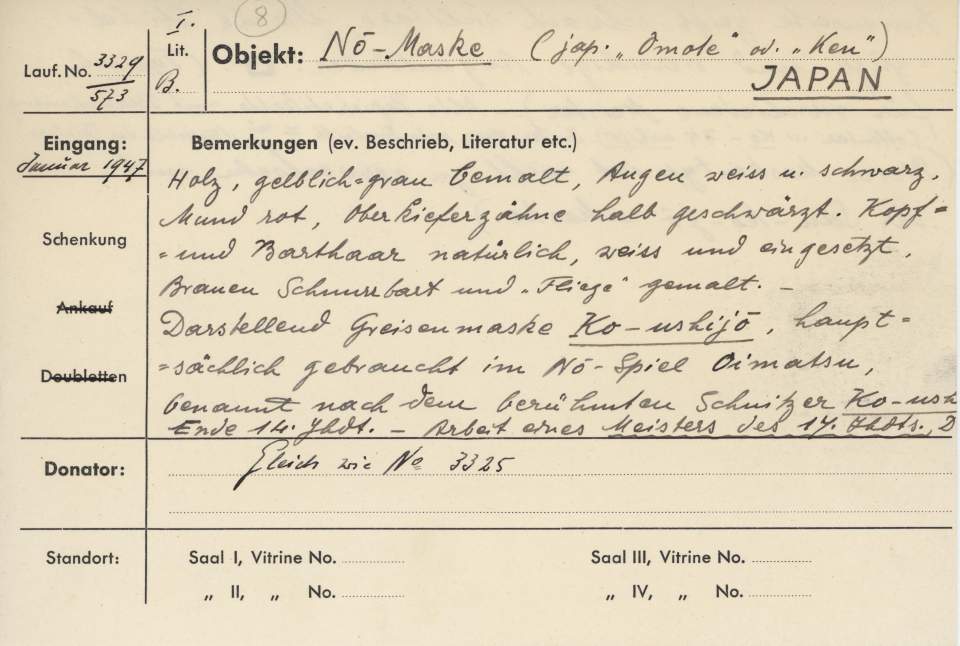 8
I.
Lit.
B.
Lauf. No. 3329
573
Objekt: Nō-Maske (jap. „Omote" od. „Ken")
JAPAN
Eingang:
Januar 1947
Schenkung
Ankauf
Doubletten
Bemerkungen (ev. Beschrieb, Literatur etc.)
Holz, gelblich=grau bemalt, Augen weiss u. schwarz.
Mund rot, Oberkieferzähne halb geschwärzt. Kopf=
=und Barthaar natürlich, weiss und eingesetzt.
Brauen Schnurrbart und „Fliege" gemalt. –
Darstellend Greisenmaske Ko-ushijō, haupt=
=sächlich gebraucht im Nō-Spiel Oimatsu,
benannt nach dem berühmten Schnitzer Ko-ush
Ende 14. Jhdt. – Arbeit eines Meisters des 17. Jhdts., D
Donator: Gleich wie No 3325
Standort:
Saal I, Vitrine No.
„ II, „ No.
Saal III, Vitrine No.
„ IV, „ No.